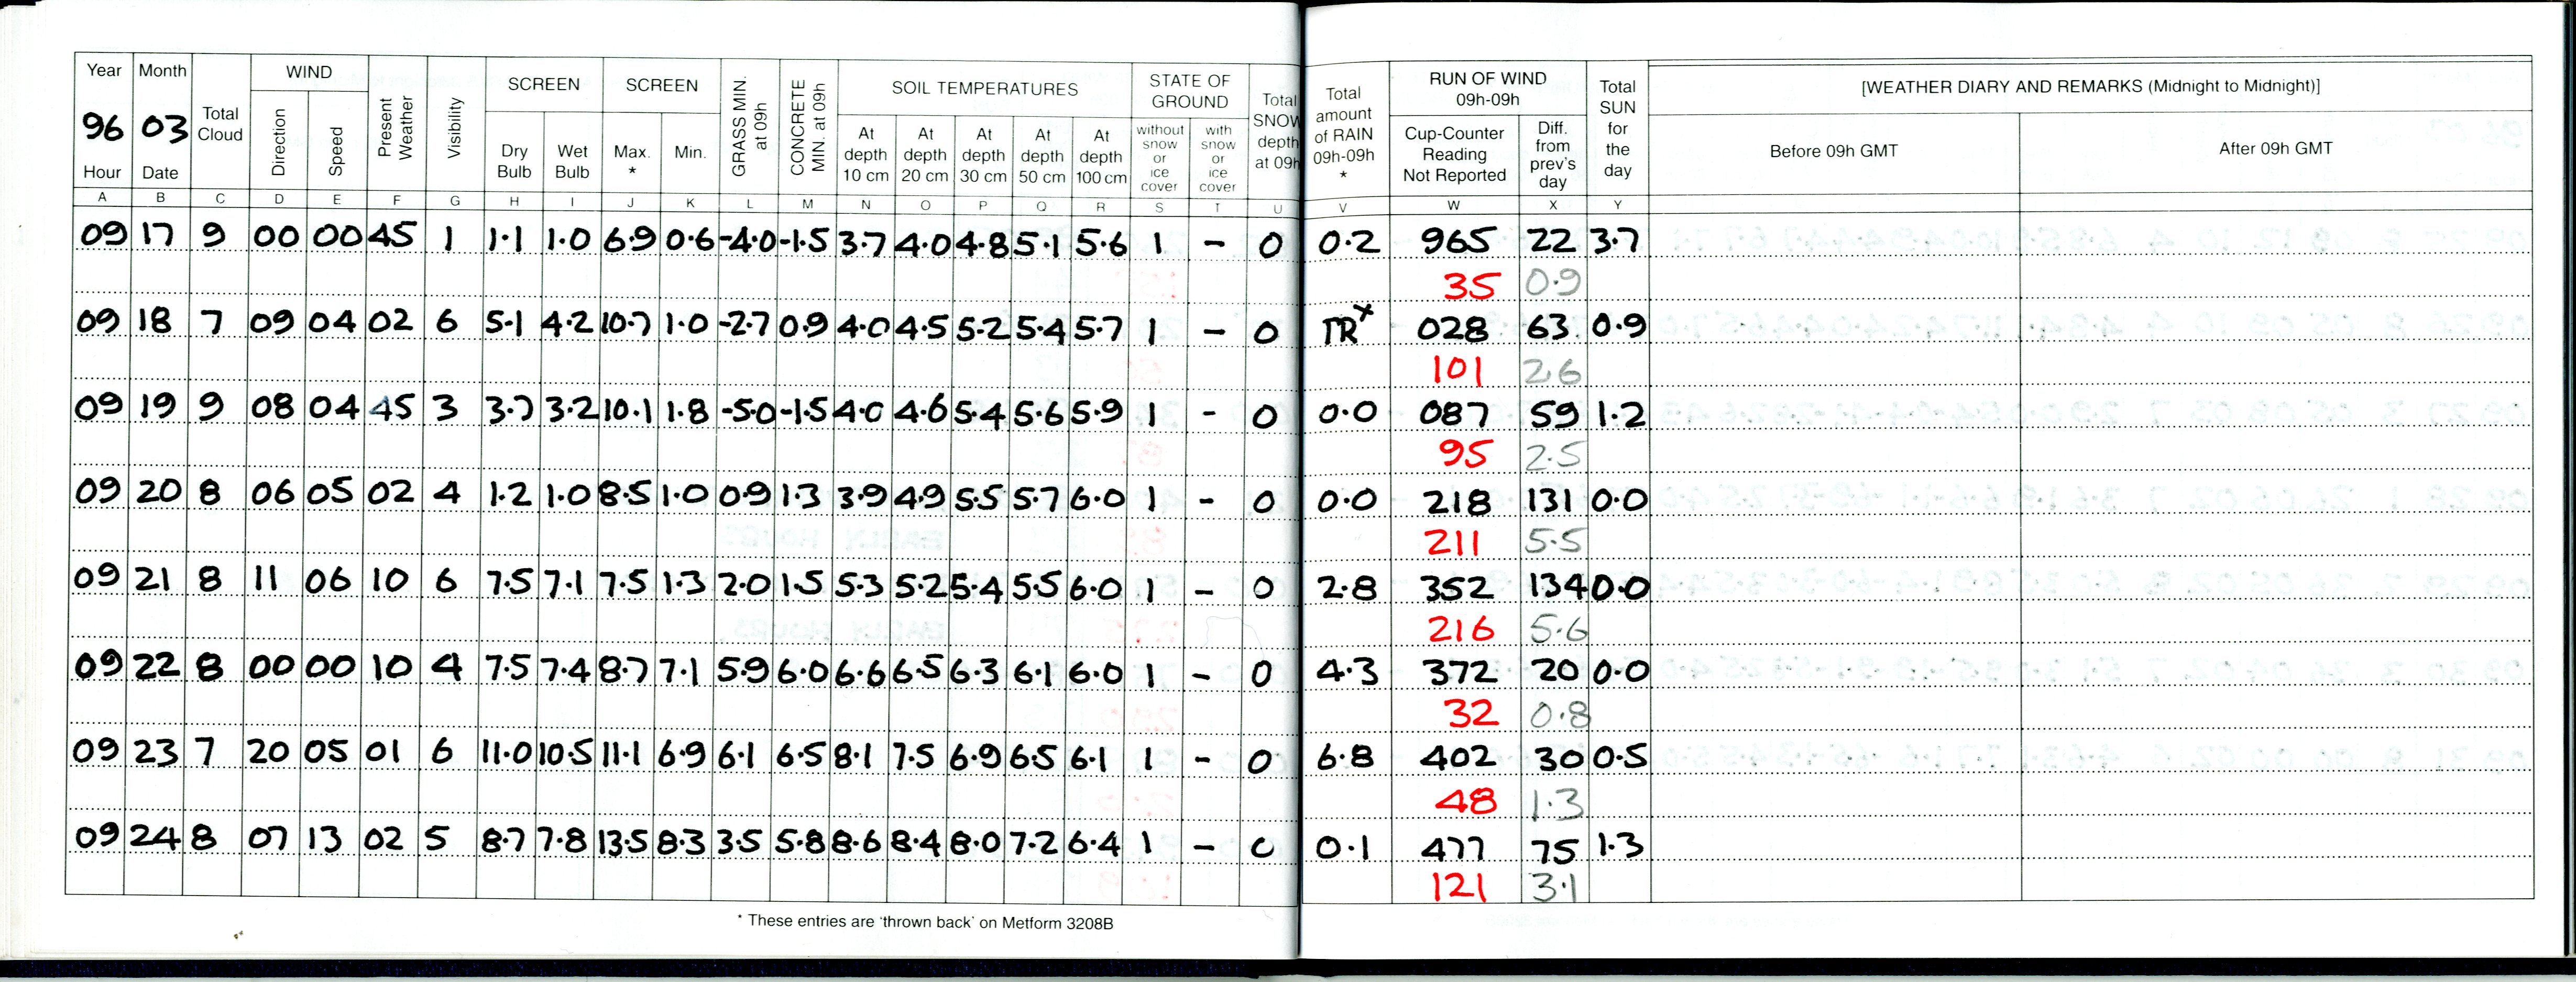 Year Month Total Cloud WIND Present Weather Visibility SCREEN SCREEN GRASS MIN. at 09h CONCRETE MIN. at 09h SOIL TEMPERATURES STATE OF GROUND Total SNOW depth at 09h Total amount of RAIN 09h-09h * RUN OF WIND 09h-09h Total SUN for the day [WEATHER DIARY AND REMARKS (Midnight to Midnight)]
96 03 Direction Speed Dry Bulb Wet Bulb Max. * Min. At depth 10 cm At depth 20 cm At depth 30 cm At depth 50 cm At depth 100 cm without snow or ice cover with snow or ice cover Cup-Counter Reading Not Reported Diff. from prev's day Before 09h GMT After 09h GMT
Hour Date
A B C D E F G H I J K L M N O P Q R S T U V W X Y
09 17 9 00 00 45 1 1·1 1·0 6·9 0·6 -4·0 -1·5 3·7 4·0 4·8 5·1 5·6 1 - 0 0·2 965 22 3·7
35 0·9
09 18 7 09 04 02 6 5·1 4·2 10·7 1·0 -2·7 0·9 4·0 4·5 5·2 5·4 5·7 1 - 0 TR x 028 63 0·9
101 2·6
09 19 9 08 04 45 3 3·7 3·2 10·1 1·8 -5·0 -1·5 4·0 4·6 5·4 5·6 5·9 1 - 0 0·0 087 59 1·2
95 2·5
09 20 8 06 05 02 4 1·2 1·0 8·5 1·0 0·9 1·3 3·9 4·9 5·5 5·7 6·0 1 - 0 0·0 218 131 0·0
211 5·5
09 21 8 11 06 10 6 7·5 7·1 7·5 1·3 2·0 1·5 5·3 5·2 5·4 5·5 6·0 1 - 0 2·8 352 134 0·0
216 5·6
09 22 8 00 00 10 4 7·5 7·4 8·7 7·1 5·9 6·0 6·6 6·5 6·3 6·1 6·0 1 - 0 4·3 372 20 0·0
32 0·8
09 23 7 20 05 01 6 11·0 10·5 11·1 6·9 6·1 6·5 8·1 7·5 6·9 6·5 6·1 1 - 0 6·8 402 30 0·5
48 1·3
09 24 8 07 13 02 5 8·7 7·8 13·5 8·3 3·5 5·8 8·6 8·4 8·0 7·2 6·4 1 - 0 0·1 477 75 1·3
121 3·1
* These entries are 'thrown back' on Metform 3208B